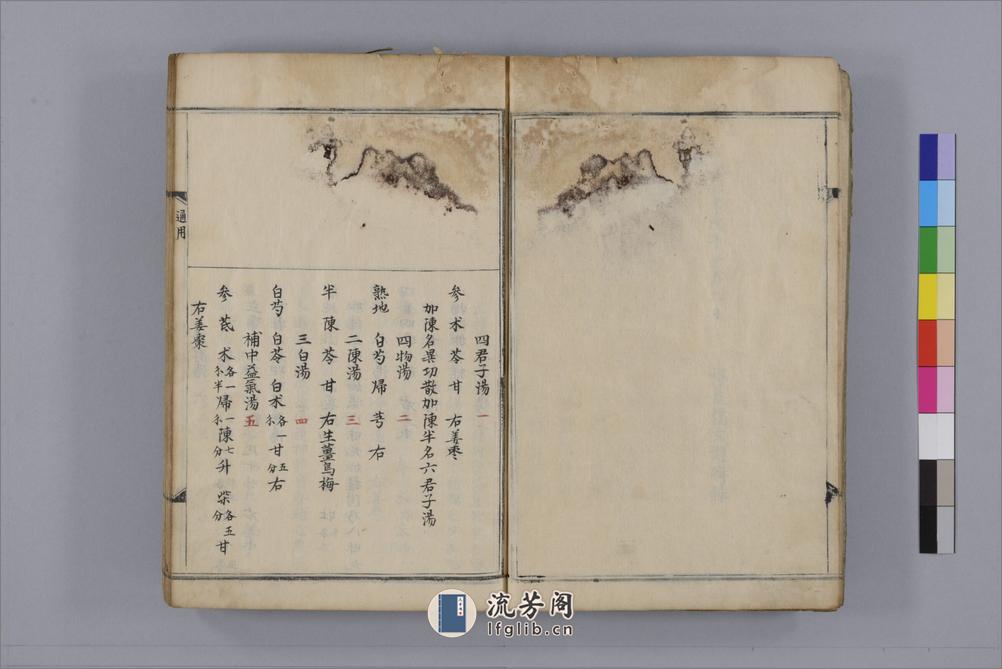 四君子湯 一
參 朮 苓 甘 右姜枣
加陳名異功散加陳半名六君子湯
四物湯 二
熟地 白芍 帰 芎 右
二陳湯 三
半 陳 苓 甘 右生薑烏梅
三白湯 四
白芍 白苓 白朮各一戔 甘五分 右
補中益氣湯 五
參 芪 朮各一戔半 帰一戔 陳七分 升 柴各五分 甘
右姜棗
通用
流芳阁
lfglib.cn